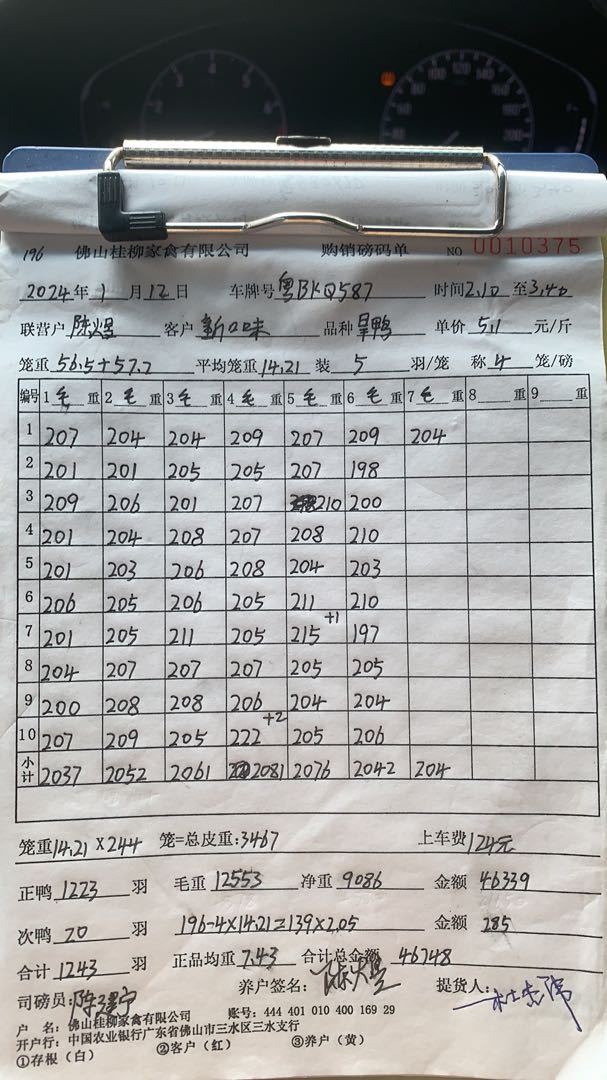 196 佛山桂柳家禽有限公司 购销磅码单 NO 0010375
2024年1月12日 车牌号 粤BKQ587 时间2.10至3.40
联营户 陈煜 客户 新口味 品种 旱鸭 单价 5.1 元/斤
笼重 56.5+57.2 平均笼重 14.21 装 5 羽/笼 称 4 笼/磅
编号 1 毛 重 2 毛 重 3 毛 重 4 毛 重 5 毛 重 6 毛 重 7 毛 重 8 重 9 重
1 207 204 204 209 207 209 204
2 201 201 205 205 207 198
3 209 206 201 207 210 200
4 201 204 208 207 208 210
5 201 203 206 208 204 203
6 206 205 206 205 211 210
7 201 205 211 205 215 +1 197
8 204 207 207 207 205 205
9 200 208 208 206 204 204
10 207 209 205 222 +2 205 206
小计 2037 2052 2061 2081 2076 2042 204
笼重14.21×244 笼=总皮重:3467 上车费124元
正鸭 1223 羽 毛重 12553 净重 9086 金额 46339
次鸭 20 羽 196-4×14.21=139×2.05 金额 285
合计 1243 羽 正品均重 7.43 合计总金额 46748
司磅员: 陈建宁 养户签名: 陈煜 提货人:
户 名: 佛山桂柳家禽有限公司 账号: 444 401 010 400 169 29
开户行: 中国农业银行广东省佛山市三水区三水支行
①存根(白) ②客户(红) ③养户(黄)